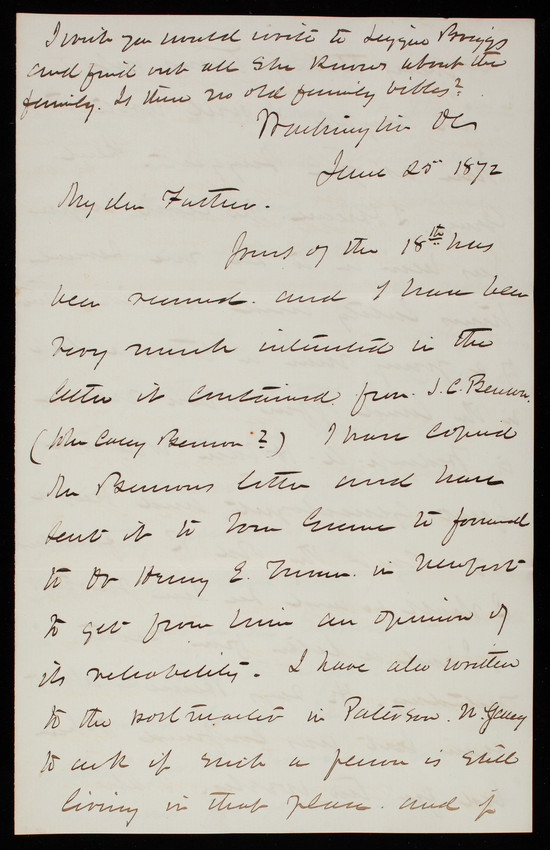 I wish you would write to Lizzie Briggs
and find out all she knows about the
family. Is there no old family bibles?
Washington DC
June 25 1872
My dear Father.
Yours of the 18th has
been received. and I have been
very much interested in the
letter it contained from J. C. Benson.
(John Casey Benson?) I have copied
Mr Bensons letter and have
sent it to Tom Greene to forward
to Dr Henry E. Turner. in Newport
to get from him an opinion of
its reliability. I have also written
to the postmaster in Paterson. N. Jersey
to ask if such a person is still
living in that place. and if